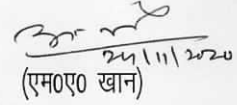 24/11/2020
(एम0ए0 खान)